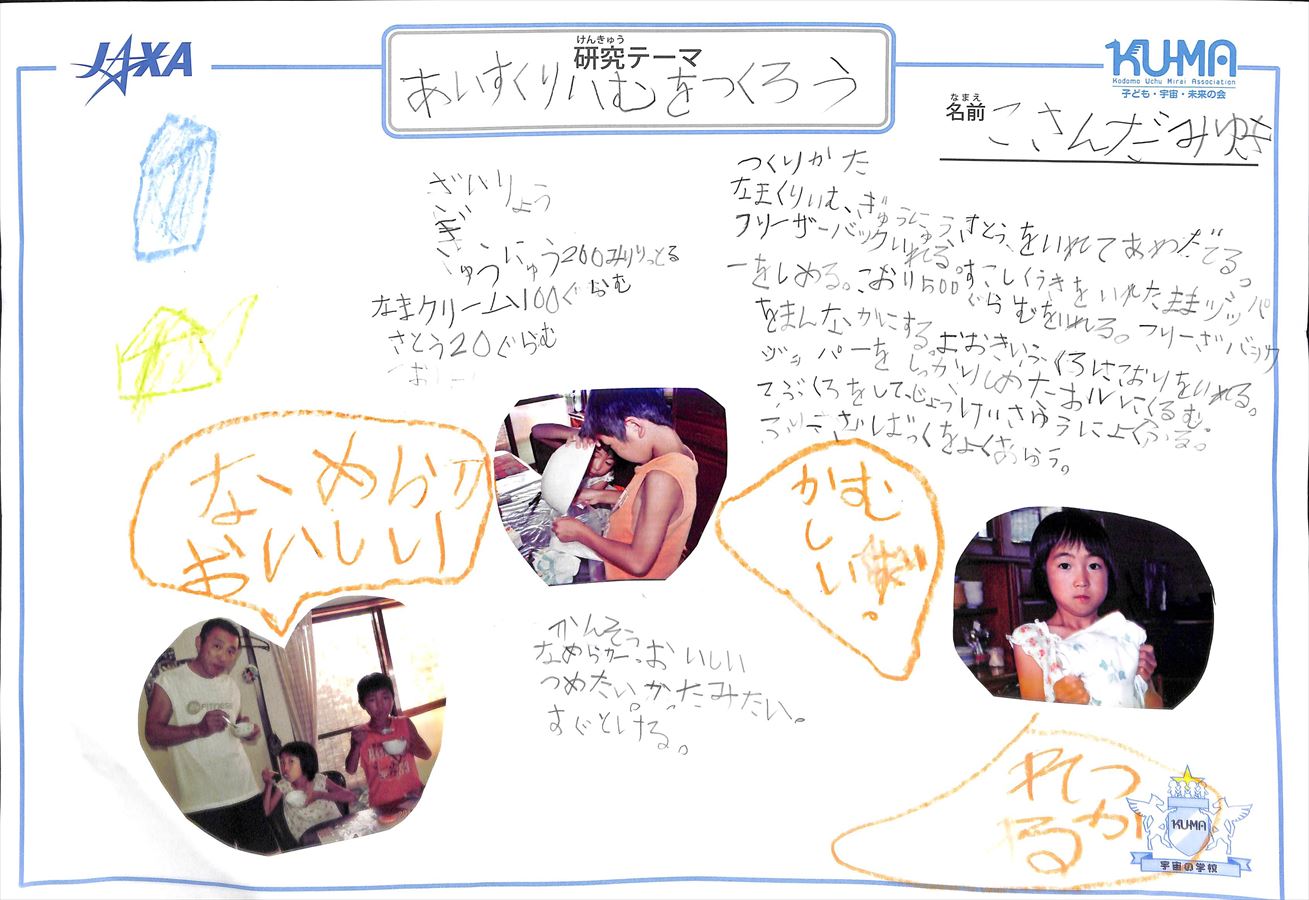 JAXA
けんきゅう
研究テーマ
あいすくりいむをつくろう
KU-MA
Kodomo Uchu Mirai Association
子ども・宇宙・未来の会
なまえ
名前 こさんだみゆき
ざいりょう
ぎゅうにゅう200みりりっとる
なまクリーム100ぐらむ
さとう20ぐらむ
つくりかた
なまくりいむ、ぎゅうにゅう、さとう、をいれてあわだてる。
フリーザーバックいれる。すこしくうきをいれたままジッパ
ーをしめる。こおり500ぐらむをいれる。フリーざバック
をまんなかにする。おおきいふくろはこおりをいれる。
ジッパーをしっかりしめたおルにくるむ。
てぶくろをして、じょうげ、さゆうによくふる。
ふりーざーばっくをよくあらう。
なめらか
おいしい
むかしい
かんそう
なめらかー、おいしい
つめたい。かったみたい。
すぐとける。
つかれてる
KU-MA
宇宙の学校